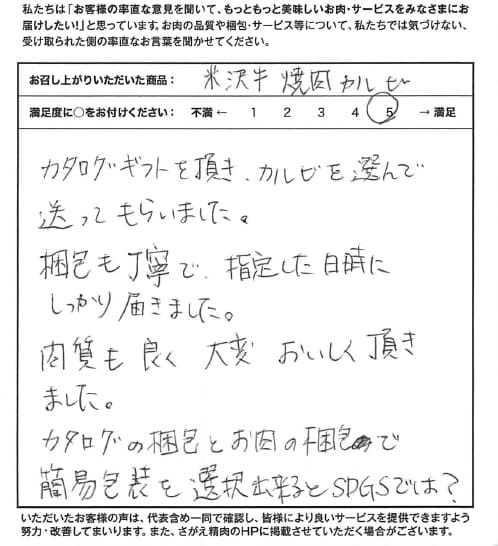 私たちは「お客様の率直な意見を聞いて、もっともっと美味しいお肉・サービスをみなさまにお
届けしたい!」と思っています。お肉の品質や梱包・サービス等について、私たちでは気づけない、
受け取られた側の率直なお言葉を聞かせてください。
お召し上がりいただいた商品: 米沢牛 焼肉カルビー
満足度に○をお付けください: 不満 ← 1 2 3 4 5 → 満足
カタログギフトを頂き、カルビを選んで
送ってもらいました。
梱包も丁寧で、指定した日時に
しっかり届きました。
肉質も良く 大変 おいしく頂き
ました。
カタログの梱包とお肉の梱包で
簡易包装を選択出来るとSDGSでは?
いただいたお客様の声は、代表含め一同で確認し、皆様により良いサービスを提供できますよう
努力・改善してまいります。また、さがえ精肉のHPに掲載させていただく場合がございます。